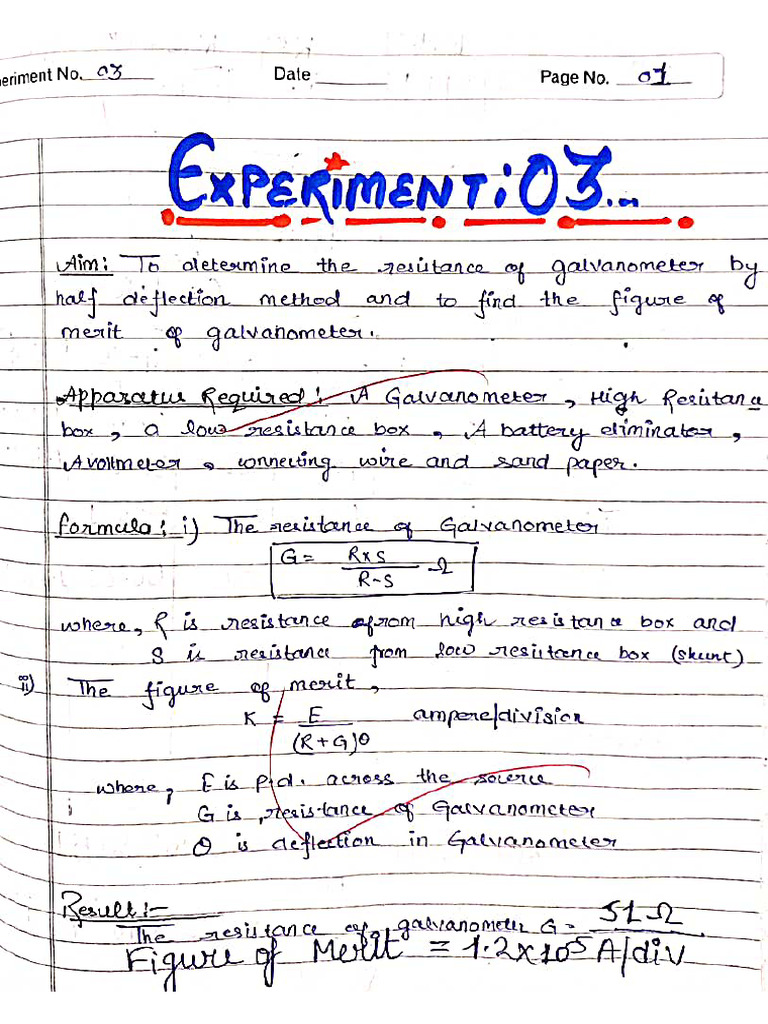 eriment No. 03 Date Page No. 01
EXPERIMENT: 03...
Aim: To determine the resistance of galvanometer by
half deflection method and to find the figure of
merit of galvanometer.
Apparatus Required: A Galvanometer, High Resistance
box, a low resistance box, A battery eliminator,
A voltmeter, connecting wire and sand paper.
formula: i) The resistance of Galvanometer
G = R×S / R-S Ω
where, R is resistance from high resistance box and
S is resistance from low resistance box (shunt)
ii) The figure of merit,
K = E / (R+G)θ ampere/division
where, E is p.d. across the source
G is resistance of Galvanometer
θ is deflection in Galvanometer
Result:-
The resistance of galvanometer G = 51 Ω
Figure of Merit = 1.2×10⁵ A/div